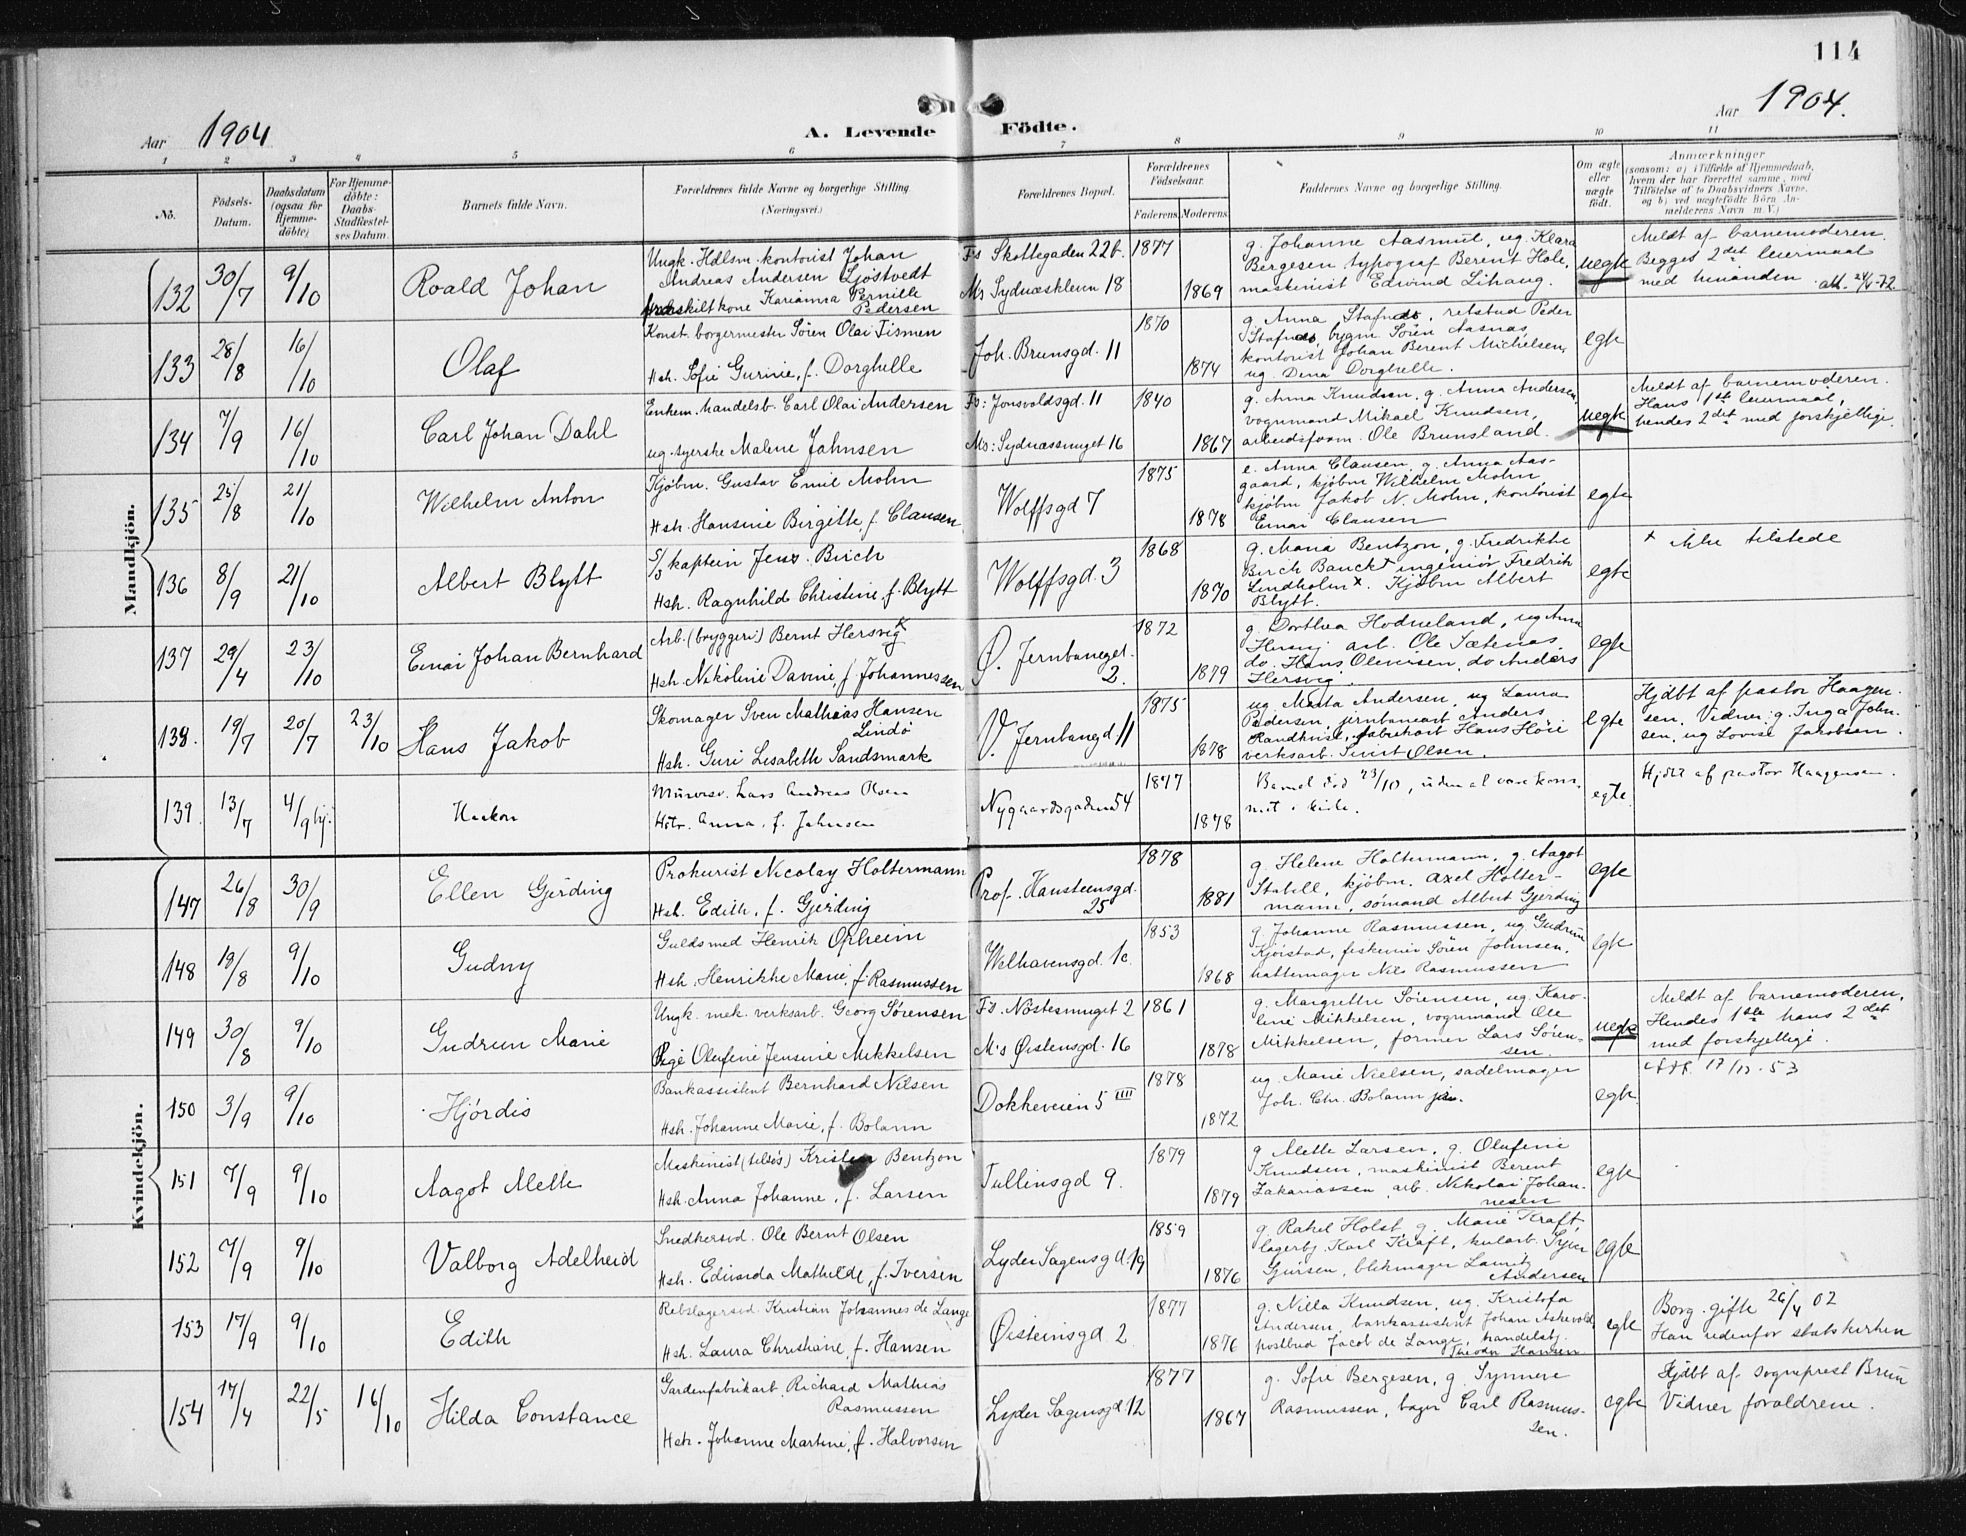 114
Aar 1904
A. Levende Födte.
Aar 1904.
1 2 3 4 5 6 7 8 9 10 11
No.
Födsels-
Datum.
Daabsdatum
(ogsaa for
Hjemme-
döbte)
For Hjemme-
döbte:
Daabs-
Stadfæstel-
ses Datum.
Barnets fulde Navn.
Forældrenes fulde Navne og borgerlige Stilling.
(Næringsvei.)
Forældrenes Bopæl.
Forældrenes
Födselsaar.
Faderens. Moderens.
Faddernes Navne og borgerlige Stilling.
Om ægte
eller
uægte
födt.
Anmærkninger
(saasom: a) i Tilfælde af Hjemmedaab,
hvem der har forrettet samme, med
Tilföielse af to Daabsvidners Navne,
og b) ved uægtefödte Börn An-
melderens Navn m. V.)
Mandkjön.
132 30/7 9/10 Roald Johan
Ungk. Hdlsm. kontorist Johan
Andreas Andersen Sjöstvedt
fraskilt kone Karianna Pernille
Pedersen
F's Skottegaden 22b. 1877
M's Sydnæskleven 18 1869
g. Johanne Aasmul, ug. Klara
Bergesen, typograf Berent Hole,
maskinist Edvind Lihaug.
uegte
Meldt af barnemoderen.
Begges 2det leiermaal
med hinanden
133 28/8 16/10 Olaf
Konst. borgermester Sören Olai Tismen
Hsh. Sofie Gurine, f. Dorghelle
Joh. Brunsgd. 11 1870 1874
g. Anna Stafnes, retsbud Peder
Stafnes, bygm Sören Aasnas
kontorist Johan Berent Michelsen,
ug. Dina Dorghelle.
egte
134 7/9 16/10 Carl Johan Dahl
Enkem. handelsb. Carl Olai Andersen
ug. syerske Malene Johnsen
F's: Jonsvoldsgd. 11 1840
M's: Sydnæssmuget 16 1867
g. Anna Knudsen, g. Anna Andersen,
vognmand Mikael Knudsen,
arbeidsform. Ole Brunsland.
uegte
Meldt af barnemoderen.
Hans 1ste leiermaal,
hendes 2det med forskjellige.
135 25/8 21/10 Wilhelm Anton
Kjöbm. Gustav Emil Mohn
Hsh. Hansine Birgitte, f. Clausen
Wolffsgd 7 1875 1878
e. Anna Clausen, g. Anna Aas-
gaard, kjöbm Wilhelm Mohn
kjöbm Jakob N. Mohn, kontorist
Einar Clausen
egte
136 8/9 21/10 Albert Blytt
S/S kaptein Jens Birch
Hsh. Ragnhild Christine, f. Blytt
Wolffsgd. 3 1868 1870
g. Maria Bentzon, g. Fredrikke
Birch Banck x ingeniör Fredrik
Lindholm x. Kjöbm Albert
Blytt.
egte
x ikke tilstede
137 29/4 23/10 Einar Johan Bernhard
Arb. (bryggeri) Bernt Hersvig
Hsh. Nikoline Davine, f. Johannessen
Ö. Jernbanegd.
2. 1872 1879
g. Dorthea Hodneland, ug Anna
Hersvig arb. Ole Sætenas,
do. Hans Olenisen, do Anders
Hersvig.
egte
138. 19/7 20/7 23/10 Hans Jakob
Skomager Sven Mathias Hansen
Lindö
Hsh. Guri Lisabeth Sandsmark
V. Jernbanegd 11 1875 1878
ug. Marta Andersen, ug Laura
Pedersen, jernbanearb. Anders
Randhuse, fabrikarb Hans Höie
verksarb. Sivert Olsen.
egte
Hjdbt af pastor Haagen-
sen. Vidner: g. Inga John-
sen, ug Lovise Jakobsen.
139. 13/7 4/9 hj. Haakon
Mursv. Lars Andreas Olsen
Hstr. Anna, f. Johnsen
Nygaardsgaden 54 1877 1878
Barnet död 23/10, uden at være kom-
met i kirke.
egte.
Hjdbt af pastor Haagensen.
Kvindekjön.
147 26/8 30/9 Ellen Gjerding
Prokurist Nicolay Holtermann
Hsh. Edith, f. Gjerding
Prof. Hansteensgd.
25 1878 1881
g. Helene Holtermann, g. Aagot
Stabell, kjöbm. Axel Holter-
mann, sömand Albert Gjerding
egte
148 19/8 9/10 Gudny
Guldsmed Henrik Opheim
Hsh. Henrikke Marie, f. Rasmussen
Welhavensgd. 1c. 1853 1868
g. Johanne Rasmussen, ug Gudrun
Kjörstad, fiskeriar Sören Johnsen,
hattemager Nils Rasmussen
egte
149 30/8 9/10 Gudrun Marie
Ungk. mek. verksarb. Georg Sörensen
Pige Olufine Jensine Mikkelsen
F's. Nöstesmuget 2 1861
M's Öistensgd. 16 1878
g. Margrethe Sörensen, ug. Karo-
line Mikkelsen, vognmand Ole
Mikkelsen, former Lars Sören-
sen.
uegte
Meldt af barnemoderen.
Hendes 1ste hans 2det
med forskjellige.
150 3/9 9/10 Hjördis
Bankassistent Bernhard Nilsen
Hsh. Johanne Marie, f. Bolann
Dokkeveien 5 IIII 1878 1872
ug. Marie Nielsen, sadelmager
Joh. Chr. Bolann jun.
egte
Att. 17/12-53
151 7/9 9/10 Aagot Mette
Maskinist (tilsös) Kristen Bentzon
Hsh. Anna Johanne, f. Larsen
Tullinsgd 9. 1879 1879
g Mette Larsen, g. Olufine
Knudsen, maskinist Berent
Zakariassen, arb. Nikolai Johan-
nesen
egte
152 7/9 9/10 Valborg Adelheid
Snedkersvd. Ole Bernt Olsen
Hsh. Edvarda Mathilde, f. Iversen
Lyder Sagensgd. 19 1859 1876
g. Rakel Holst, g. Marie Kraft,
lagerbj. Karl Kraft, kularb. Syver
Gjersen, blikmager Lauritz
Andersen
egte
153 17/9 9/10 Edith
Rebslagersvd. Kristian Johannes de Lange
Hsh. Laura Christiane, f. Hansen
Öisteinsgd. 2 1877 1876
g. Nilla Knudsen, ug. Kristofa
Andersen, bankassistent Johan Askevold,
postbud Jacob de Lange, handelsbj.
Theodor Hansen
egte
Borg. gifte 26/4 02
Han udenfor statskirken
154 17/4 22/5 16/10 Hilda Constance
Gardenfabrikarb. Richard Mathias
Rasmussen
Hsh. Johanne Martine, f. Halvorsen
Lyder Sagensgd. 12 1877 1867
g. Sofie Bergesen, g. Synneve
Rasmussen, bager Carl Rasmus-
sen.
egte
Hjdbt af sogneprest Brun
Vidner foreldrene.